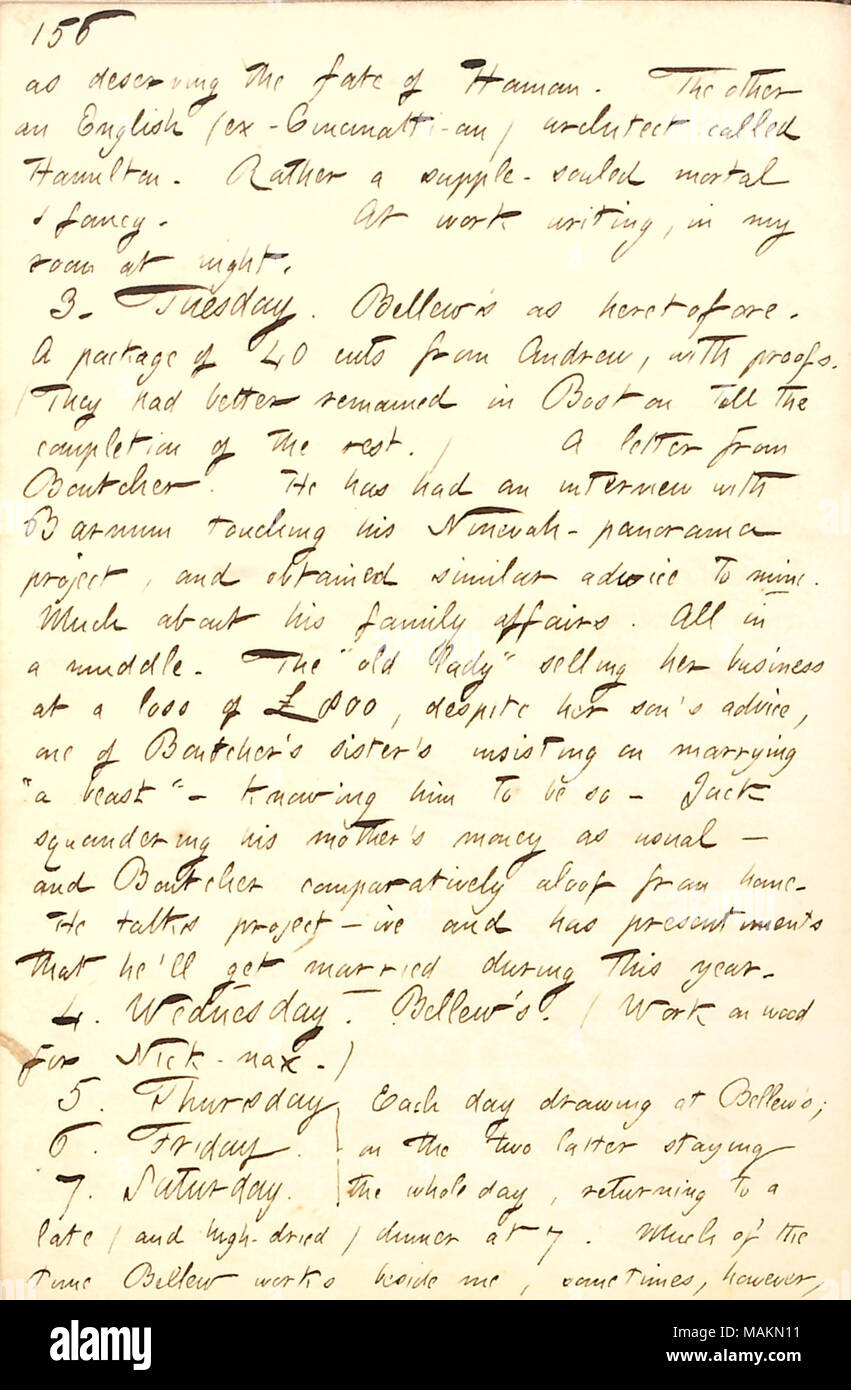 156
as deserving the fate of Haman. The other
an English (ex-Cincinatti-an) architect called
Hamilton. Rather a supple-souled mortal
I fancy. At work writing, in my
room at night.
3. Tuesday. Bellew's as heretofore.
A package of 40 cuts from Andrew, with proofs.
(They had better remained in Boston till the
completion of the rest.) A letter from
Boutcher. He has had an interview with
Barnum touching his Ninevah-panorama
project, and obtained similar advice to mine.
Much about his family affairs. All in
a muddle. The "old lady" selling her business
at a loss of £800, despite her son's advice,
one of Boutcher's sister's insisting on marrying
"a beast" - knowing him to be so - Jack
squandering his mother's money as usual -
and Boutcher comparatively aloof from home.
He talks project-ive and has presentiments
that he'll get married during this year.
4. Wednesday. Bellew's. (Work on wood
for Nick-nax.)
5. Thursday Each day drawing at Bellew's;
6. Friday. on the two latter staying
7. Saturday. the whole day, returning to a
late (and high-dried) dinner at 7. Much of the
time Bellew works beside me, sometimes, however,
alamy
Image ID: MAKN11
www.alamy.com